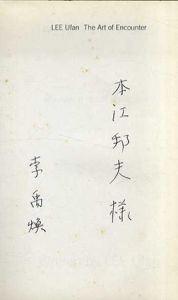 LEE Ufan The Art of Encounter
本江邦夫様
李禹煥